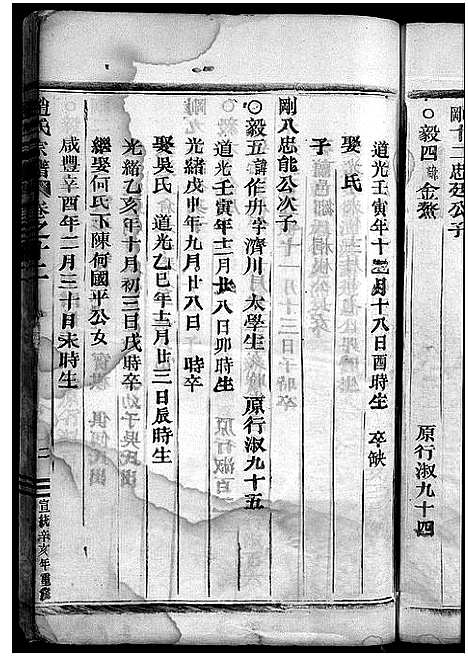 剛十二忠廷公子
○毅四諱金鰲 原行淑九十四
道光壬寅年十月十八日酉時生 卒缺
娶 氏
子
剛八忠能公次子
○毅五諱作舟字濟川 太學生 原行淑九十五
道光壬寅年十二月廿八日卯時生
光緒戊申年九月廿八日 時卒
娶吳氏 道光乙巳年十二月廿三日辰時生
光緒乙亥年十月初三日戌時卒
繼娶何氏下陳何國平公女
咸豐辛酉年二月三十日未時生
趙氏宗譜 卷之十二
宣統辛亥年重修